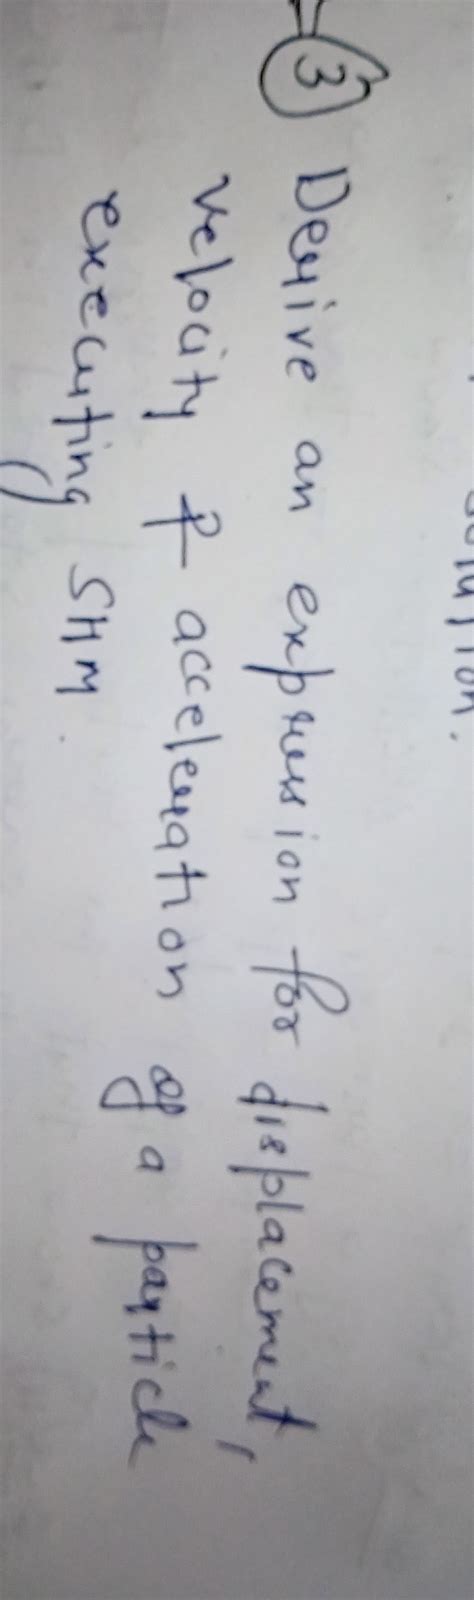 solution.
3 Derive an expression for displacement,
velocity & acceleration of a particle
executing SHM.